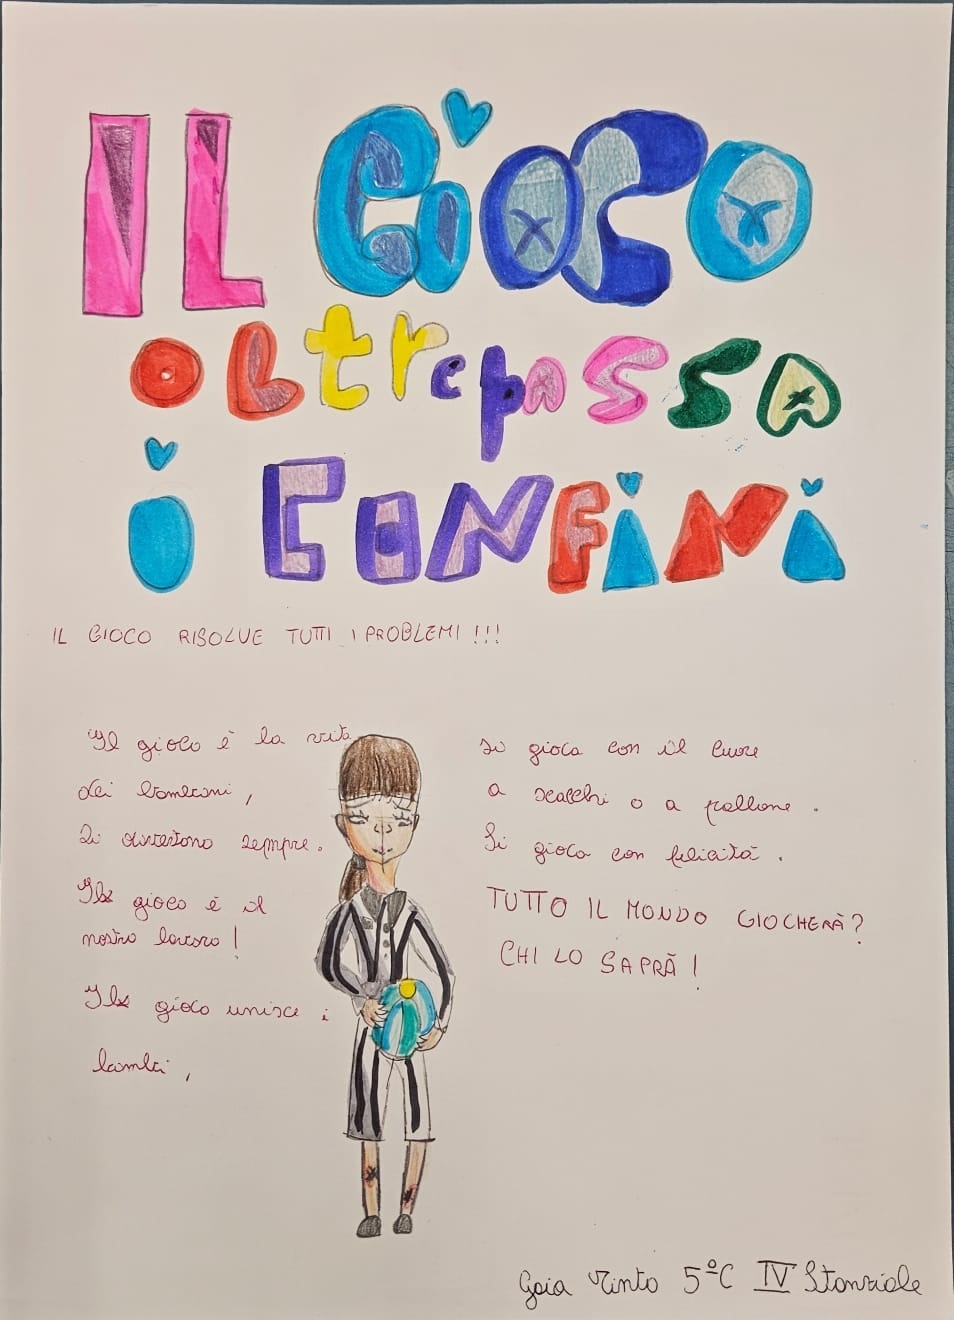 IL GIOCO
oltrepassa
i CONFINI
IL GIOCO RISOLVE TUTTI I PROBLEMI !!!
"Il gioco è la vita
dei bambini,
Si divertono sempre.
Il gioco è il
nostro lavoro!
Il gioco unisce i
bambi,
Si gioca con il cuore
a scacchi o a pallone.
Si gioca con felicità.
TUTTO IL MONDO GIOCHERÀ?
CHI LO SAPRÀ!
Gaia 5ºC IV Stanziale